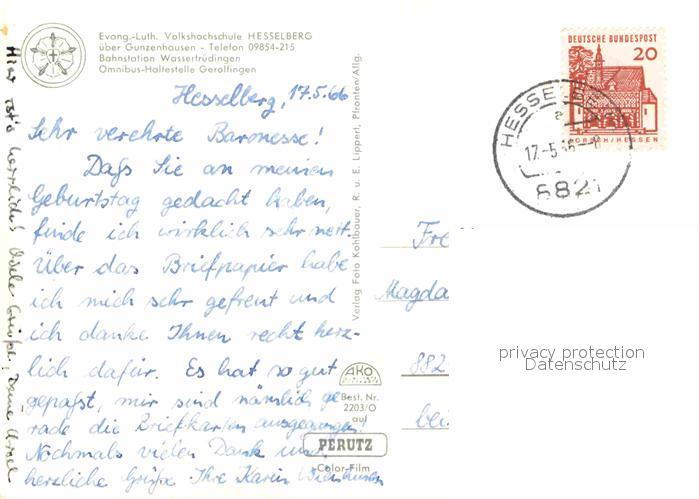 Evang.-Luth. Volkshochschule HESSELBERG
über Gunzenhausen - Telefon 09854-215
Bahnstation Wassertrüdingen
Omnibus-Haltestelle Gerolfingen
Hesselberg, 17.5.66
Sehr verehrte Baronesse!
Daß Sie an meinen
Geburtstag gedacht haben,
finde ich wirklich sehr nett.
Über das Briefpapier habe
ich mich sehr gefreut und
ich danke Ihnen recht herz-
lich dafür. Es hat so gut
gepaßt, mir sind nämlich ge
rade die Briefkarten ausgegangen!
Nochmals vielen Dank und
herzliche Grüße Ihre Karin
Hier ist's herrlich! Viele Grüße,
Verlag Foto Kohlbauer, R. u. E. Lippert, Pfronten/Allg.
AKO
Best. Nr.
2203/O
auf
PERUTZ
Color-Film
DEUTSCHE BUNDESPOST
20
LORSCH/HESSEN
HESSELBERG
a
17.-5.66-8
8821
Fre
Magda
882
bei
privacy protection
Datenschutz